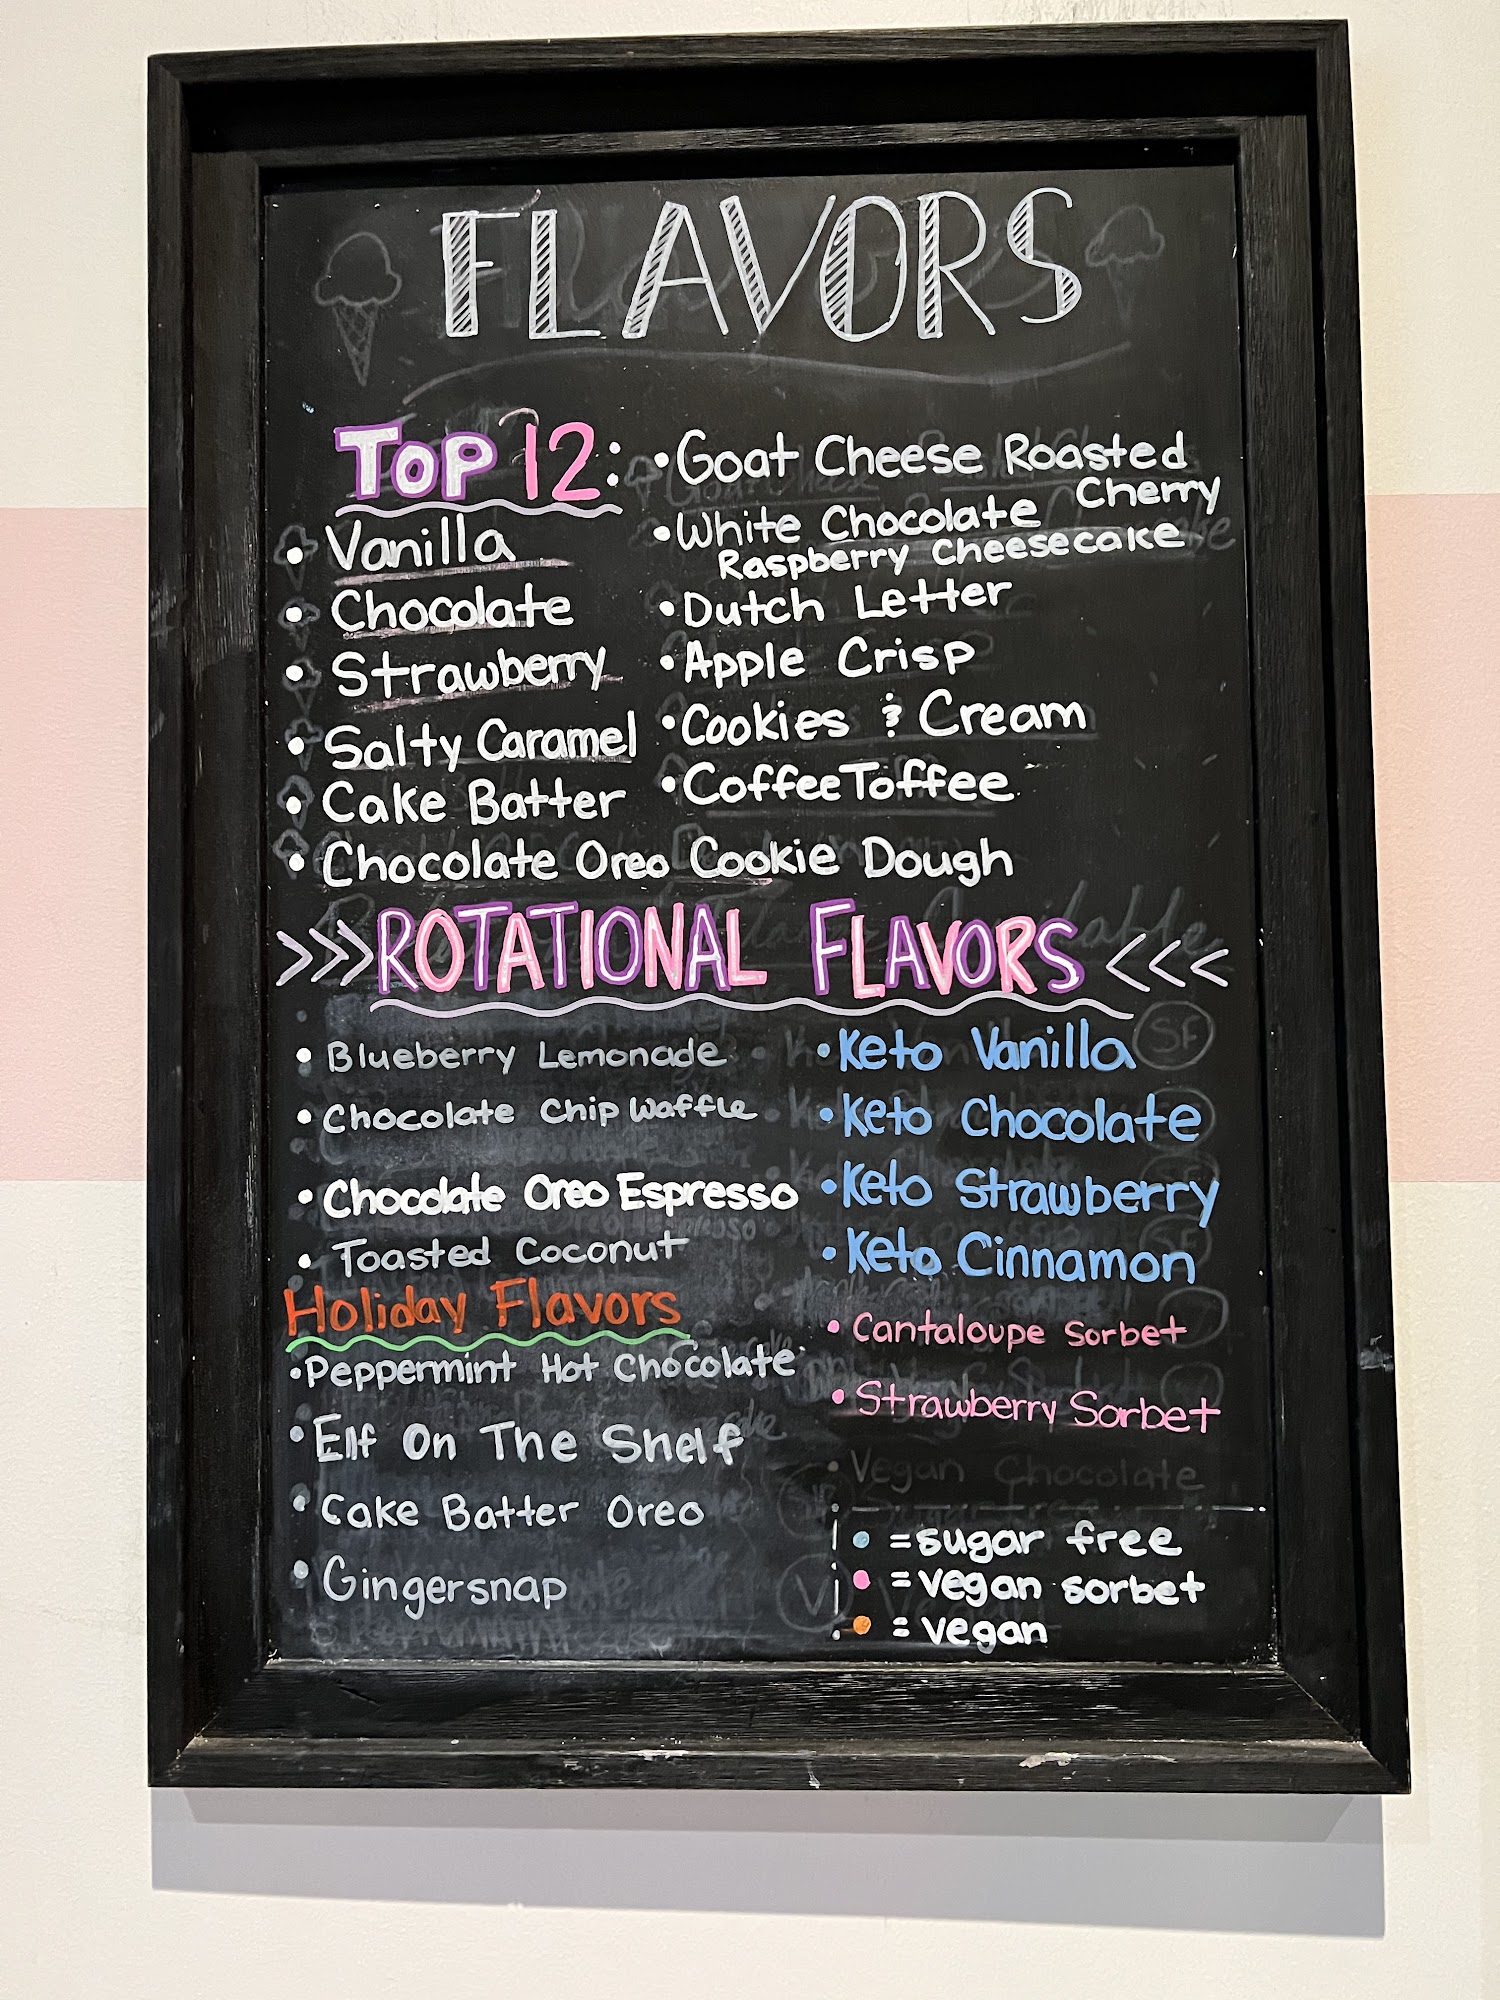 FLAVORS
TOP 12:
• Vanilla
• Chocolate
• Strawberry
• Salty Caramel
• Cake Batter
• Chocolate Oreo Cookie Dough
• Goat Cheese Roasted
Cherry
• White Chocolate
Raspberry Cheesecake
• Dutch Letter
• Apple Crisp
• Cookies & Cream
• Coffee Toffee
>>> ROTATIONAL FLAVORS <<<
• Blueberry Lemonade
• Chocolate Chip Waffle
• Chocolate Oreo Espresso
• Toasted Coconut
Holiday Flavors
• Peppermint Hot Chocolate
• Elf On The Shelf
• Cake Batter Oreo
• Gingersnap
• Keto Vanilla
• Keto Chocolate
• Keto Strawberry
• Keto Cinnamon
• Cantaloupe Sorbet
• Strawberry Sorbet
• Vegan Chocolate
• = sugar free
• = vegan sorbet
• = vegan